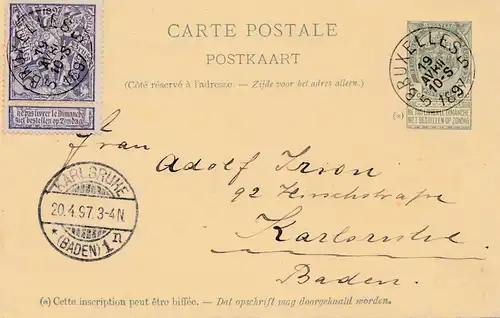 CARTE POSTALE
POSTKAART
(Côté réservé à l'adresse. – Zijde voor het adres alleen.)
BRUXELLES 5
19
AVRIL
10-S
1897
BRUXELLES 5
19
AVRIL
10-S
1897
Ne pas livrer le Dimanche
Niet bestellen op Zondag
NE PAS LIVRER LE DIMANCHE
NIET BESTELLEN OP ZONDAG
(*)
Frau
Adolf Irion
92 Hirschstrasse
Karlsruhe
Baden.
KARLSRUHE
20.4.97.3-4N.
* (BADEN) 1n
(*) Cette inscription peut être biffée. – Dat opschrift mag doorgehaald worden.